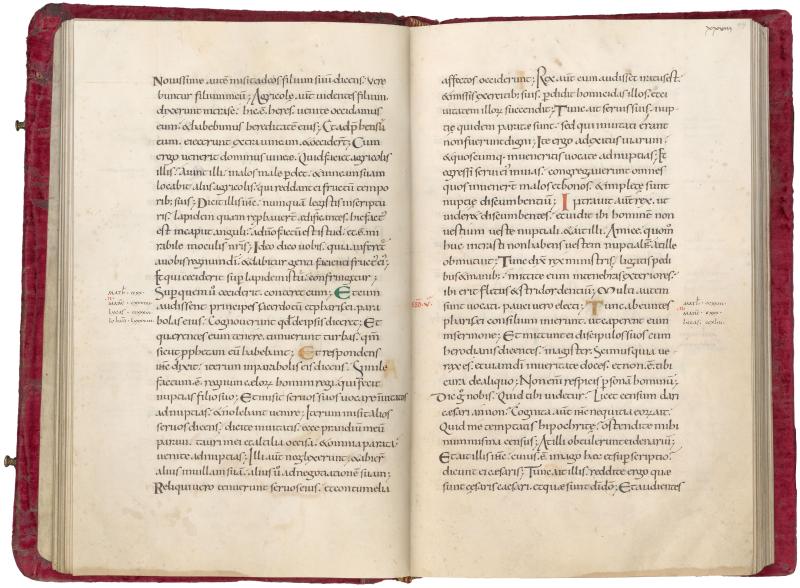 Nouissime autē misit ad eos filium suū dicens. Vere
buntur filium meū; Agricolę aut̄ uidentes filium.
dixerunt intra se. hic ē heres. uenite occidamus
eum. & habebimus hereditatē eius; Et adp̄hensū
eum. eiecerunt extra uineam. & occider̄t; Cum
ergo uenerit dominus uineę. Quid faciet agricolis
illis. Aiunt illi. malos male p̄det. & uineam suam
locabit aliis agricolis. qui reddant ei fructū tempo
rib; suis; Dicit illis ihc̄. numquā legistis in scriptu
ris. lapidem quem reprobauer̄t ędificantes. hic fact'
est in caput anguli. a dn̄o factū est istud. et ē mi
rabile in oculis nr̄is; Ideo dico uobis. quia auferet'
a uobis regnum dī. & dabitur genti facienti fructꝰ ei';
Et qui ceciderit sup̄ lapidem istū. confringetur;
Sup̄ quem ū ceciderit. conteret eum; Et cum
audissent principes sacerdotū et pharisei para
bolas eius. Cognouerunt qd̄ de ipsis diceret; Et
querentes eum tenere. timuerunt turbas. qm̄
sicut pphetam eū habebant; Et respondens
ihc̄ dixit iterum in parabolis eis dicens. Simile
factum ē regnum cęlorꝫ homini regi. qui fecit
nuptias filio suo; Et misit seruos suos uocare inuitatos
ad nuptias. & nolebant uenire; Iterum misit alios
seruos dicens. dicite inuitatis. ecce prandiū meū
paraui. tauri mei et altilia occisa. & omnia parata
uenite ad nuptias; Illi aut̄ neglexerunt. & abier̄t
alius in uillam suā. alius ū ad negotiationē suam;
Reliqui uero tenuerunt seruos eius. et contumelia
MATH̄
MARC̄
LUCAS
IOHAN̄
xxxviii
affectos occiderunt; Rex aut̄ cum audisset iratus est.
& missis exercitib; suis. p̄didit homicidas illos. et ci
uitatem illorꝫ succendit; Tunc ait seruis suis. nup
tię quidem paratę sunt. sed qui inuitati erant
non fuerunt digni; Ite ergo ad exitus uiarum.
& quoscumq; inueneritis uocate ad nuptias; Et
egressi serui ei' in uias. congregauerunt omnes
quos inuener̄t malos et bonos. & implętę sunt
nuptię discumbentiū; Intrauit aut̄ rex. ut
uideret discumbentes. et uidit ibi hominē non
uestitum ueste nuptiali. & ait illi. Amice. quom̄
huc intrasti non habens uestem nuptialē. at ille
obmutuit; Tunc dix̄ rex ministris. ligatis pedi
bus & manib;. mittite eum in tenebras exteriores.
ibi erit fletus & stridor dentiū; Multi autem
sunt uocati. pauci uero electi; Tunc abeuntes
pharisei consilium inierunt. ut caperent eum
in sermone; Et mittunt ei discipulos suos cum
herodianis dicentes. magister. Scimus quia ue
rax es. et uiam dī in ueritate doces. et non. ē. tibi
cura de aliquo; Non enī respicis p̄sonā hominū;
Dic g̊ nobis. Quid tibi uidetur. Licet censum dari
cæsari. an non. Cognita aut̄ ihc̄ nequitia eorꝫ ait.
Quid me temptatis hipochritę. ostendite mihi
numisma census; At illi obtulerunt ei denariū;
Et ait illis ihc̄. cuius. ē. imago hæc et sup̄scriptio
dicunt ei cæsaris; Tunc ait illis. reddite ergo quæ
sunt cæsaris cæsari. et quæ sunt dī dō; Et audientes
MATH̄
MARC̄
LUCAS